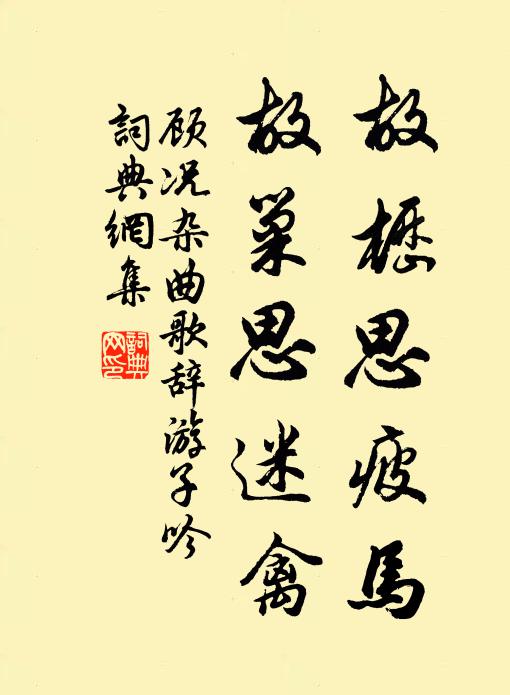 故櫪思疲馬
故巢思迷禽
顾况杂曲歌辞游子吟
詞典網集
詞典
网印